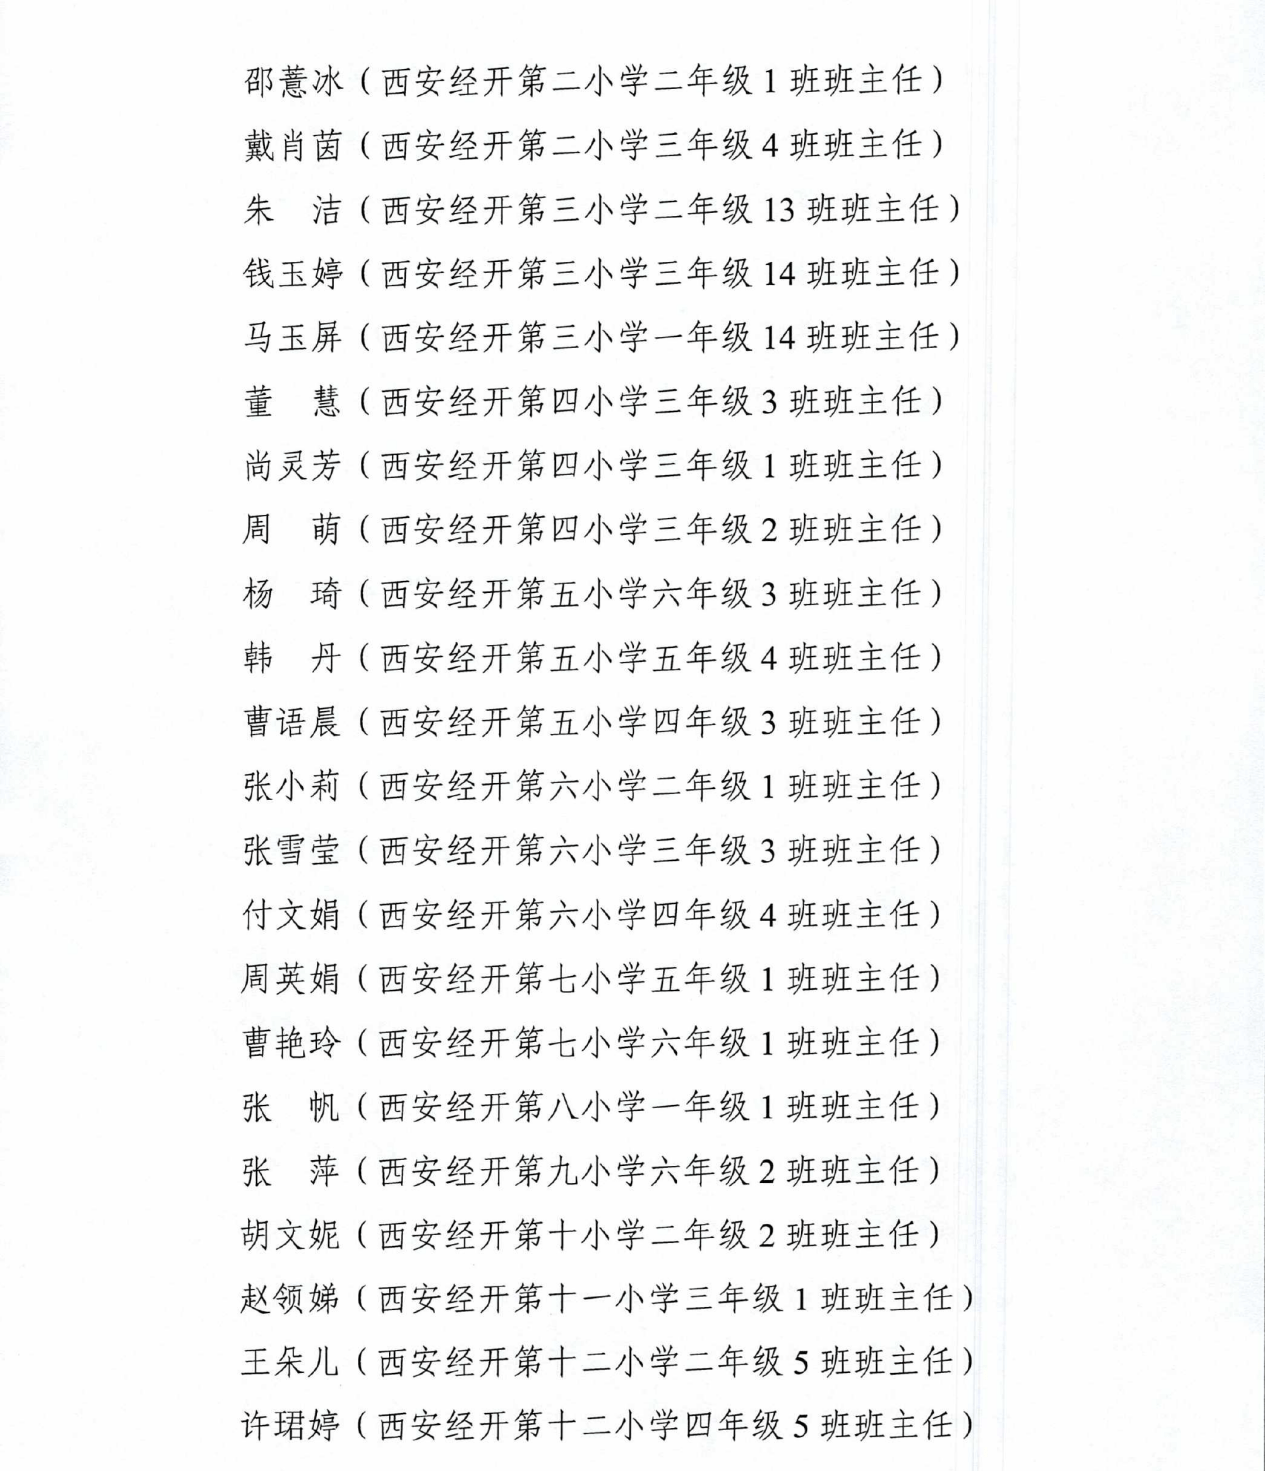 邵薏冰（西安经开第二小学二年级 1 班班主任）
戴肖茵（西安经开第二小学三年级 4 班班主任）
朱　洁（西安经开第三小学二年级 13 班班主任）
钱玉婷（西安经开第三小学三年级 14 班班主任）
马玉屏（西安经开第三小学一年级 14 班班主任）
董　慧（西安经开第四小学三年级 3 班班主任）
尚灵芳（西安经开第四小学三年级 1 班班主任）
周　萌（西安经开第四小学三年级 2 班班主任）
杨　琦（西安经开第五小学六年级 3 班班主任）
韩　丹（西安经开第五小学五年级 4 班班主任）
曹语晨（西安经开第五小学四年级 3 班班主任）
张小莉（西安经开第六小学二年级 1 班班主任）
张雪莹（西安经开第六小学三年级 3 班班主任）
付文娟（西安经开第六小学四年级 4 班班主任）
周英娟（西安经开第七小学五年级 1 班班主任）
曹艳玲（西安经开第七小学六年级 1 班班主任）
张　帆（西安经开第八小学一年级 1 班班主任）
张　萍（西安经开第九小学六年级 2 班班主任）
胡文妮（西安经开第十小学二年级 2 班班主任）
赵领娣（西安经开第十一小学三年级 1 班班主任）
王朵儿（西安经开第十二小学二年级 5 班班主任）
许珺婷（西安经开第十二小学四年级 5 班班主任）